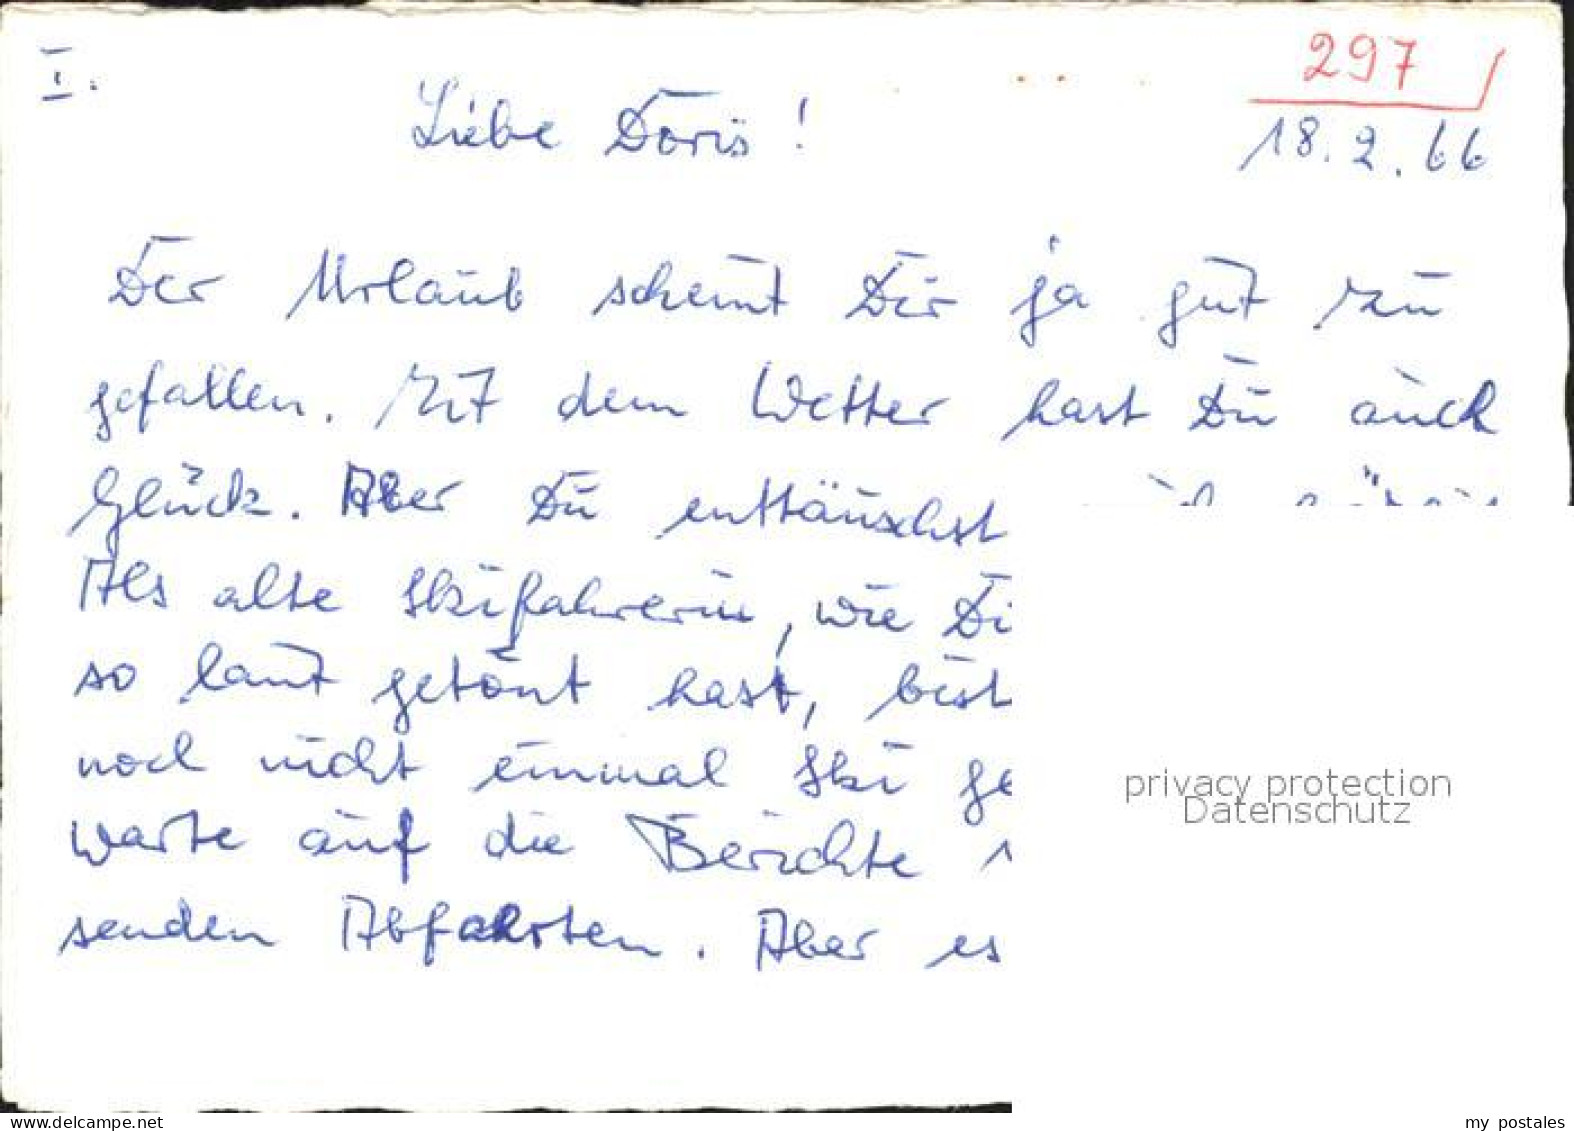 297
I.
Liebe Doris!
18.2.66
Der Urlaub scheint Dir ja gut zu
gefallen. Mit dem Wetter hast Du auch
Glück. Aber Du enttäuschst
Als alte Skifahrerin, wie Di
so laut getönt hast, bist
noch nicht einmal Ski ge
warte auf die Berichte
senden Abfahrten. Aber es
privacy protection
Datenschutz
www.delcampe.net
my_postales